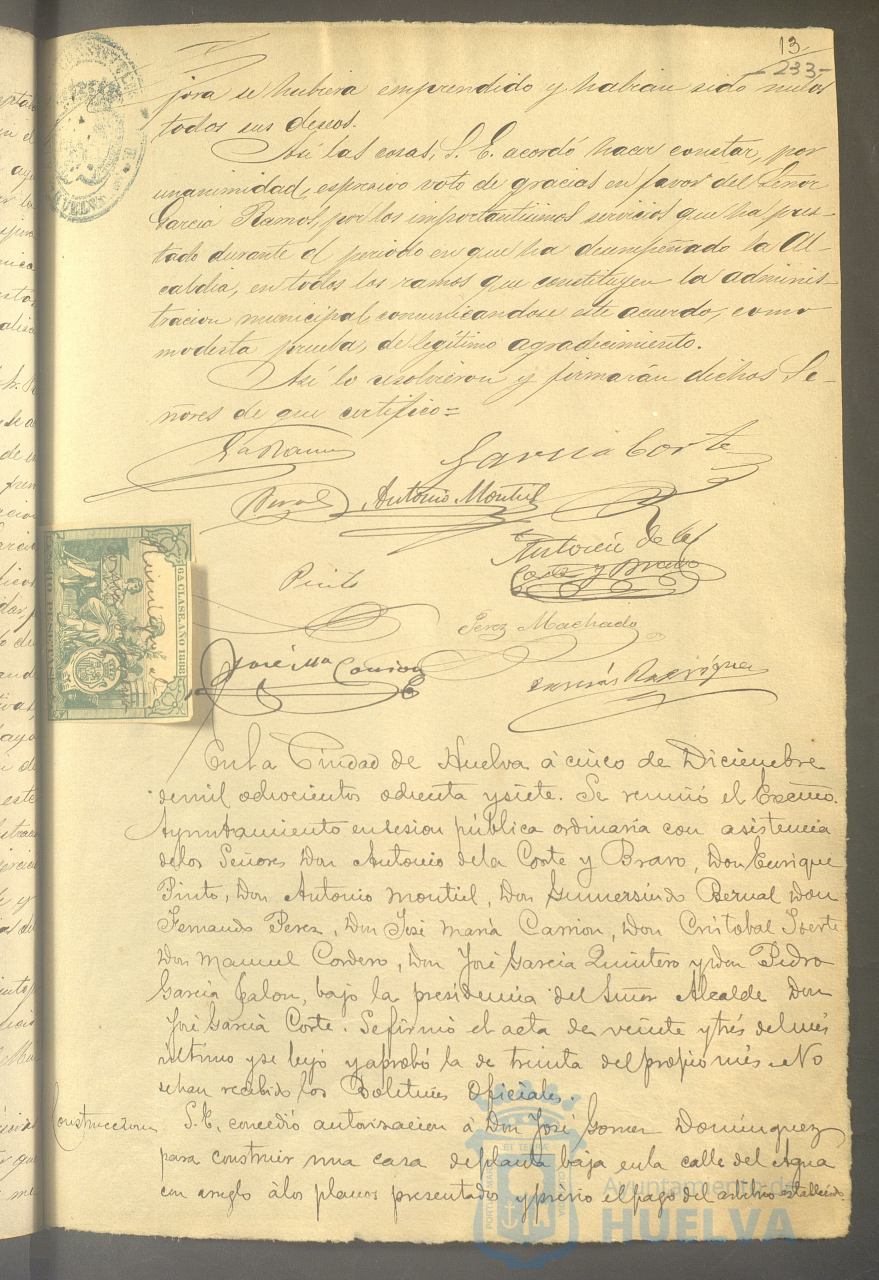 13
-233-
jora se hubiera emprendido y habrian sido nulos
todos sus deseos.
Así las cosas, S. E. acordó hacer constar, por
unanimidad, espresivo voto de gracias en favor del Señor
Garcia Ramos, por los importantisimos servicios que ha pres-
tado durante el periodo en que ha desempeñado la Al-
caldia, en todos los ramos que constituyen la adminis-
tracion municipal, comunicandose este acuerdo, como
modesta prueba, de legítimo agradecimiento.
Así lo resolvieron y firmarán dichos Se-
ñores de que certifico=
Garcia Corte
Bernal
Antonio Montiel
Antonio de la
Corte y Bravo
Pinto
Perez Machado
José Mª Carrion
Rodriguez
6ª CLASE. AÑO 1888
En la Ciudad de Huelva á cinco de Diciembre
de mil ochocientos ochenta y siete. Se reunió el Excmo.
Ayuntamiento en sesion pública ordinaria con asistencia
de los Señores Don Antonio de la Corte y Bravo, Don Enrique
Pinto, Don Antonio Montiel, Don Gumersindo Bernal Don
Fernando Perez, Don José María Carrion, Don Cristobal
Don Manuel Cordero, Don José Garcia Quintero y Don Pedro
Garcia Jalon, bajo la presidencia del Señor Alcalde Don
José Garcia Corte. Se firmó el acta de veinte y trés del més
último y se leyó y aprobó la de treinta del propio més. No
se han recibido los Boletines Oficiales.
Construccion S. E. concedió autorizacion á Don José Gomez Dominguez
para construir una casa de planta baja en la calle del Agua
con arreglo á los planos presentado y prévio el pago del arbitrio establecido.
Ayuntamiento de
HUELVA